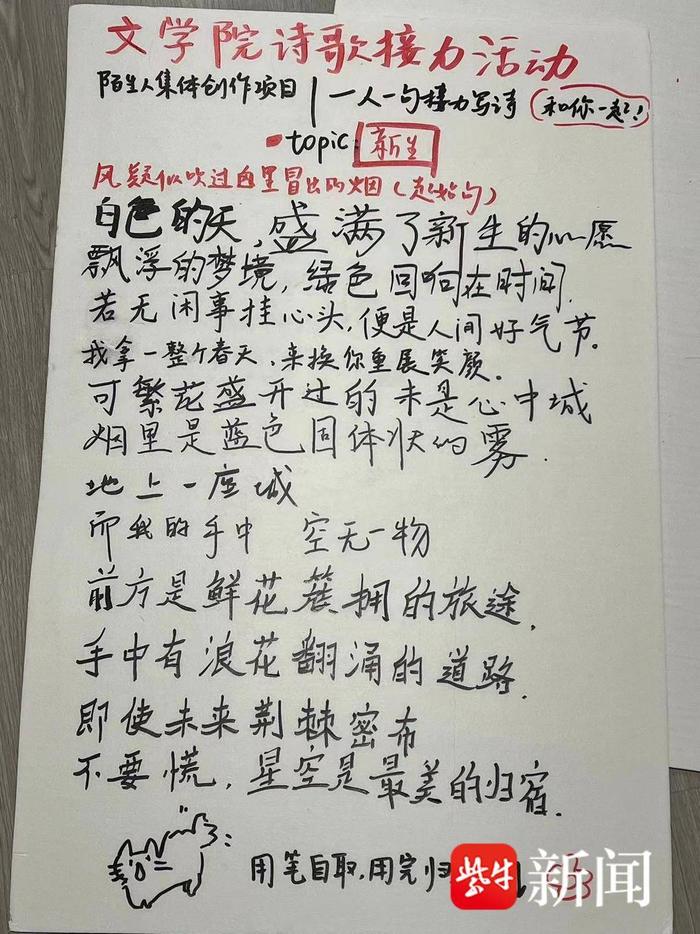 文学院诗歌接力活动
陌生人集体创作项目 | 一人一句接力写诗 (和你一起!)
•topic: 新生
风疑似吹过自里冒出的烟(起始句)
白色的天,盛满了新生的心愿
飘浮的梦境,绿色回响在时间.
若无闲事挂心头,便是人间好气节。
我拿一整个春天,来换你重展笑颜。
可繁花盛开过的 未是心中城
烟里是蓝色固体状的雾.
地上一座城
而我的手中 空无一物
前方是鲜花簇拥的旅途,
手中有浪花翻涌的道路.
即使未来荆棘密布
不要慌,星空是最美的归宿.
用笔自取,用完归
紫牛新闻